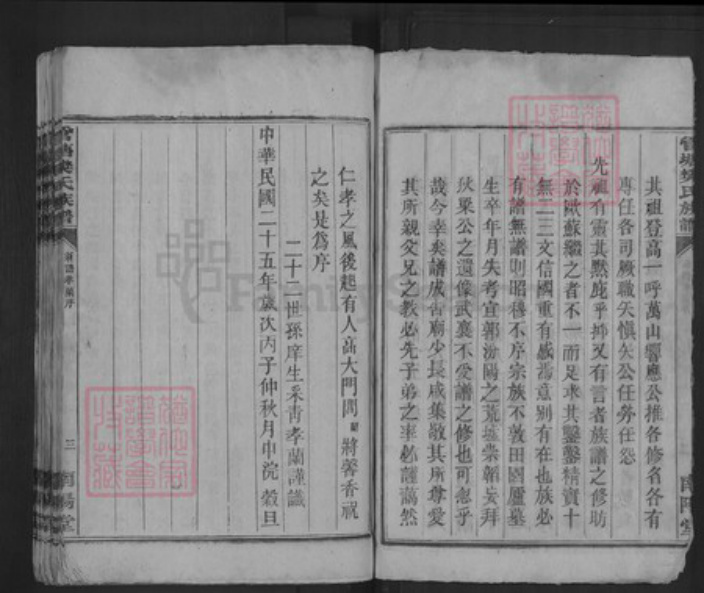 其祖登高一呼萬山響應公推各修名各有
專任各司厥職矢慎矢公任勞任怨
先祖有靈其默庇乎抑又有言者族譜之修昉
於歐蘇繼之者不一而足求其鑿鑿精實十
無二三文信國重有感焉意別有在也族必
有譜無譜則昭穆不序宗族不敦田園廬墓
生卒年月失考宜郭汾陽之荒墟崇韜妄拜
狄梁公之遺像武襄不受譜之修也可忽乎
哉今幸矣譜成告廟少長咸集敬其所尊愛
其所親父兄之教必先子弟之率必謹藹然
南陽堂
仁孝之風後起有人高大門閭蘭將馨香祝
之矣是為序
二十二世孫庠生采青孝蘭謹識
中華民國二十五年歲次丙子仲秋月中浣穀旦
氏族譜
三
南陽堂